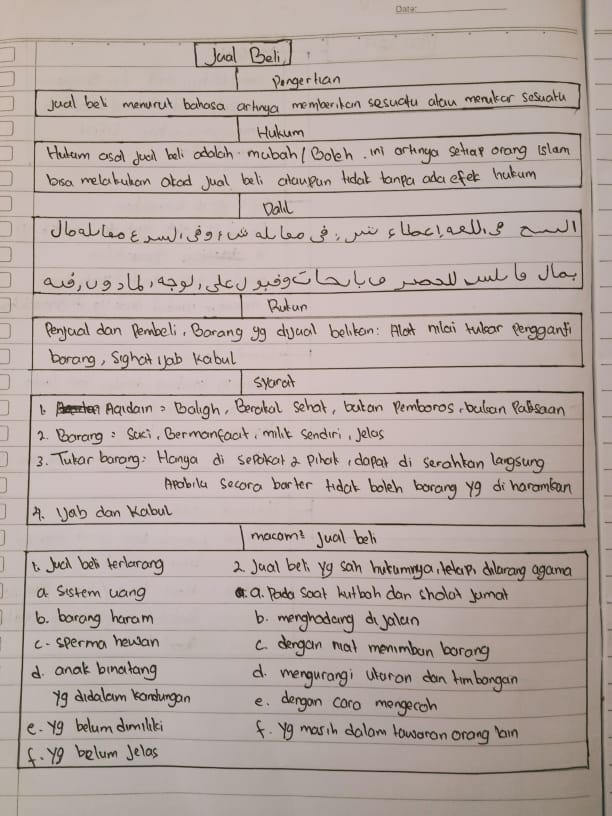 Date:
Jual Beli
Pengertian
Jual beli menurut bahasa artinya memberikan sesuatu atau menukar sesuatu
Hukum
Hukum asal jual beli adalah mubah/Boleh. ini artinya setiap orang Islam
bisa melakukan akad jual beli ataupun tidak tanpa ada efek hukum
Dalil
فى اللغه إعطاء فى مقابله شاء وفى مقابله مال
بمال على الوجه المادون فيه
Rukun
Penjual dan Pembeli, Barang yg dijual belikan: Alat nilai tukar pengganti
barang, Sighat ijab kabul
syarat
1. Aqidain = Baligh, Berakal sehat, bukan Pemboros, bukan Paksaan
2. Barang = Suci, Bermanfaat, milik sendiri, Jelas
3. Tukar barang: Hanya di sepakat 2 pihak, dapat di serahkan langsung
Apabila secara barter tidak boleh barang yg di haramkan
4. Ijab dan Kabul
macam² Jual beli
1. Jual beli terlarang
a. Sistem uang
b. barang haram
c. sperma hewan
d. anak binatang
yg didalam kandungan
e. yg belum dimiliki
f. yg belum Jelas
2. Jual beli yg sah hukumnya, tetapi dilarang agama
a. Pada saat kutbah dan sholat jumat
b. menghadang di jalan
c. dengan niat menimbun barang
d. mengurangi ukuran dan timbangan
e. dengan cara mengecoh
f. yg masih dalam tawaran orang lain